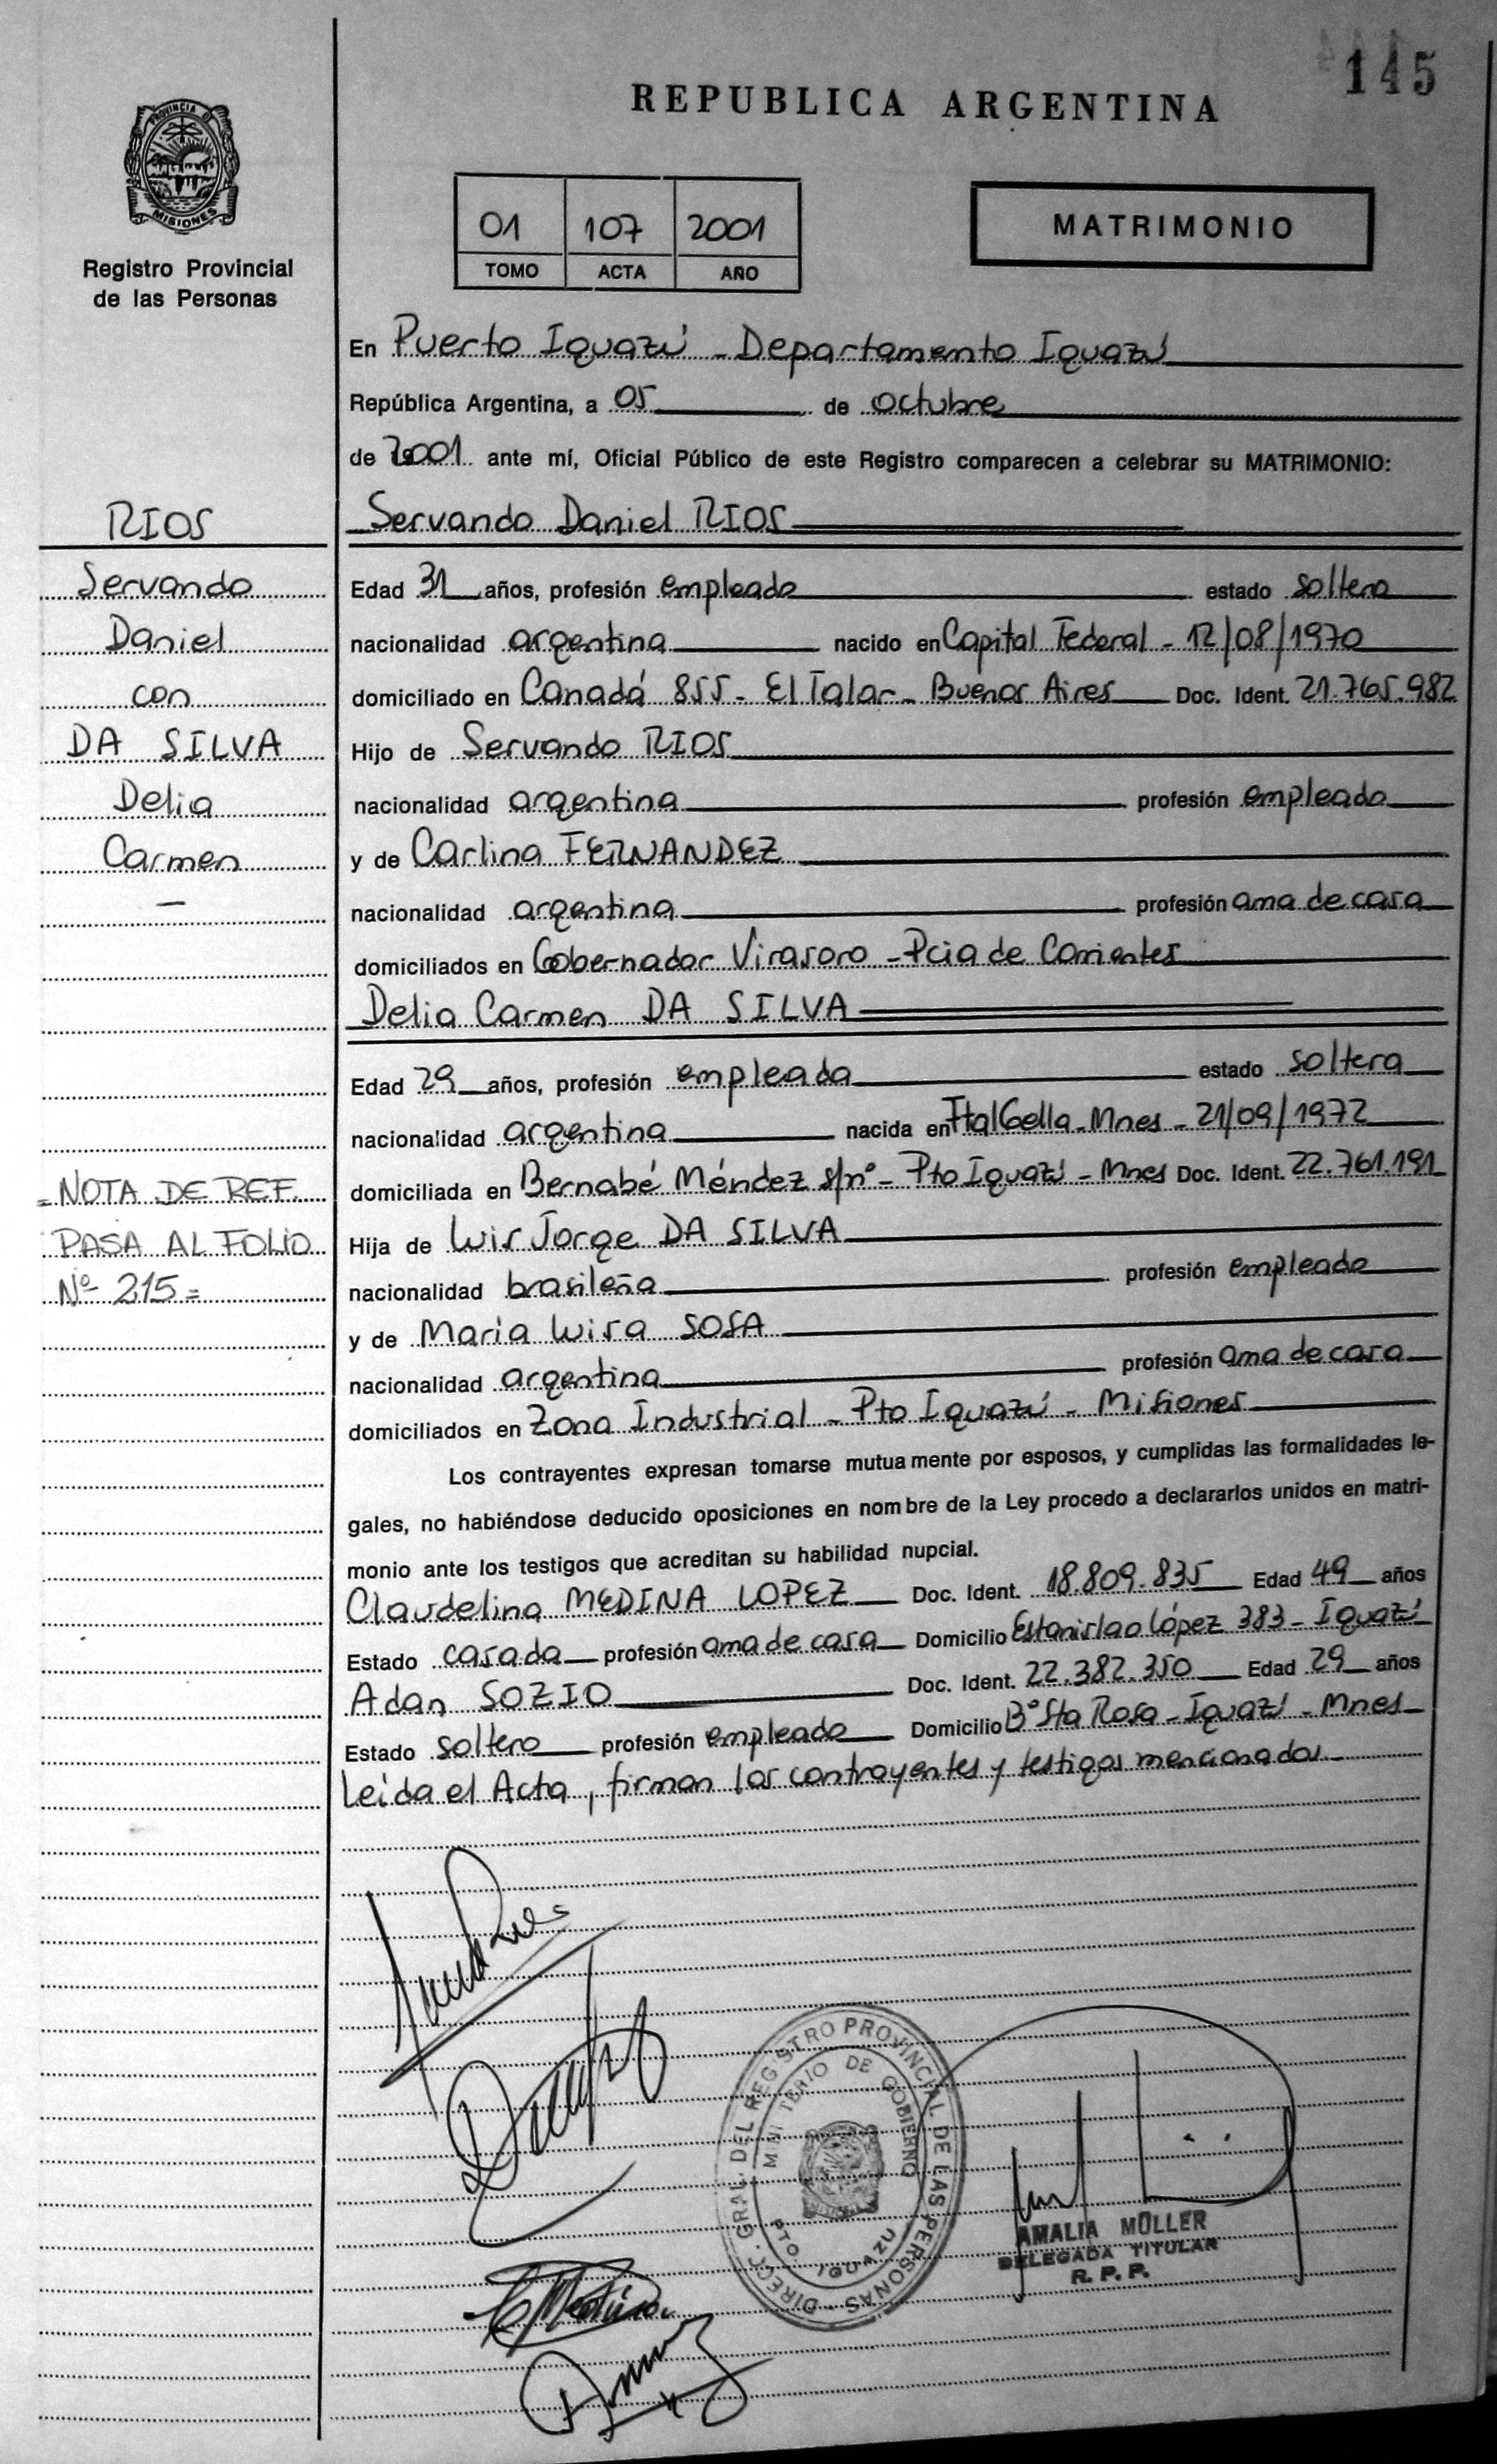 145
REPUBLICA ARGENTINA
PROVINCIA D
MISIONES
Registro Provincial
de las Personas
01 107 2001
TOMO ACTA AÑO
MATRIMONIO
En Puerto Iguazú - Departamento Iguazú
República Argentina, a 05 de octubre
de 2001 ante mí, Oficial Público de este Registro comparecen a celebrar su MATRIMONIO:
Servando Daniel RIOS
Edad 31 años, profesión empleado estado soltero
nacionalidad argentina nacido en Capital Federal - 12/08/1970
domiciliado en Canadá 855 - El Talar - Buenos Aires Doc. Ident. 21.765.982
Hijo de Servando RIOS
nacionalidad argentina profesión empleado
y de Carlina FERNANDEZ
nacionalidad argentina profesión ama de casa
domiciliados en Gobernador Virasoro - Pcia de Corrientes
Delia Carmen DA SILVA
Edad 29 años, profesión empleada estado soltera
nacionalidad argentina nacida en Mnes - 21/09/1972
domiciliada en Bernabé Méndez s/nº - Pto Iguazú - Mnes Doc. Ident. 22.761.191
Hija de Luis Jorge DA SILVA
nacionalidad brasileña profesión empleado
y de Maria Luisa SOSA
nacionalidad argentina profesión ama de casa
domiciliados en Zona Industrial - Pto Iguazú - Misiones
Los contrayentes expresan tomarse mutuamente por esposos, y cumplidas las formalidades le-
gales, no habiéndose deducido oposiciones en nombre de la Ley procedo a declararlos unidos en matri-
monio ante los testigos que acreditan su habilidad nupcial.
Claudelina MEDINA LOPEZ Doc. Ident. 18.809.835 Edad 49 años
Estado casada profesión ama de casa Domicilio Estanislao López 383 - Iguazú
Adan SOZIO Doc. Ident. 22.382.350 Edad 29 años
Estado soltero profesión empleado Domicilio Bº Sta Rosa - Iguazú - Mnes
Leída el Acta, firman los contrayentes y testigos mencionados
RIOS
Servando
Daniel
con
DA SILVA
Delia
Carmen
=NOTA DE REF.
PASA AL FOLIO
Nº 215=
DIRECC. GRAL. DEL REGISTRO PROVINCIAL DE LAS PERSONAS
MINITERIO DE GOBIERNO
PTO. IGUAZU
AMALIA MÜLLER
DELEGADA TITULAR
R. P. P.